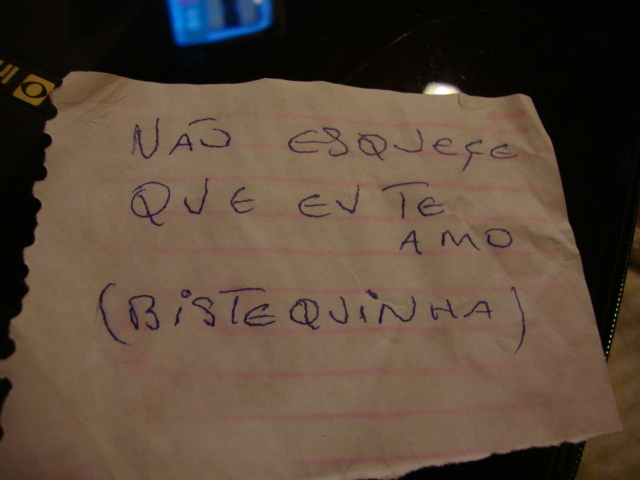 NÃO ESQUEÇE
QUE EU TE
AMO
(BISTEQUINHA)